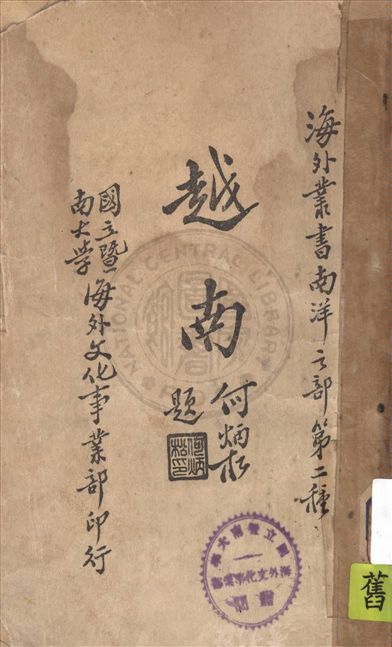 海外叢書南洋之部第二種
越南
何炳松
題
何炳松印
國立暨南大學海外文化事業部印行
NATIONAL CENTRAL LIBRARY
國立暨南大學
海外文化事業部
舊